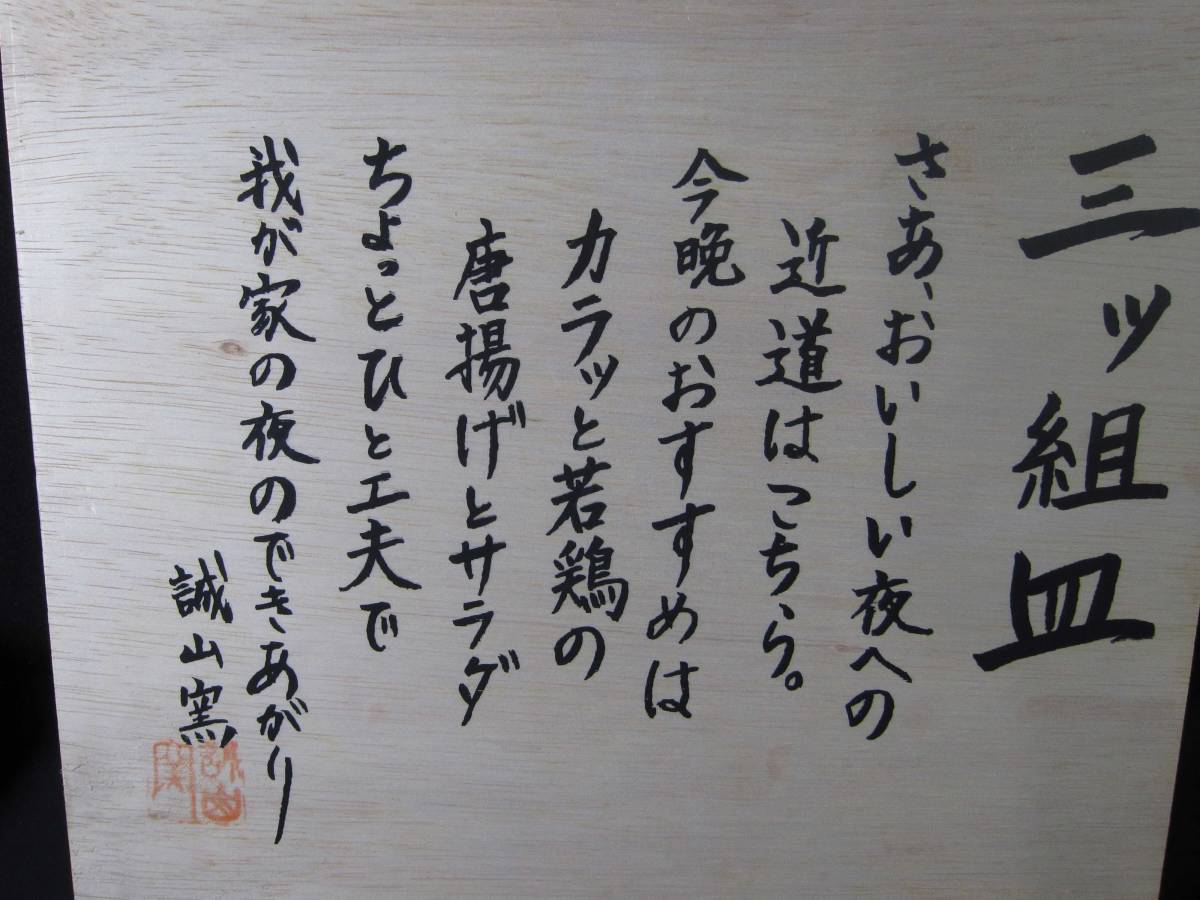 三ッ組皿
さあ、おいしい夜への
近道はこちら。
今晩のおすすめは
カラッと若鶏の
唐揚げとサラダ
ちょっとひと工夫で
我が家の夜のできあがり
誠山窯